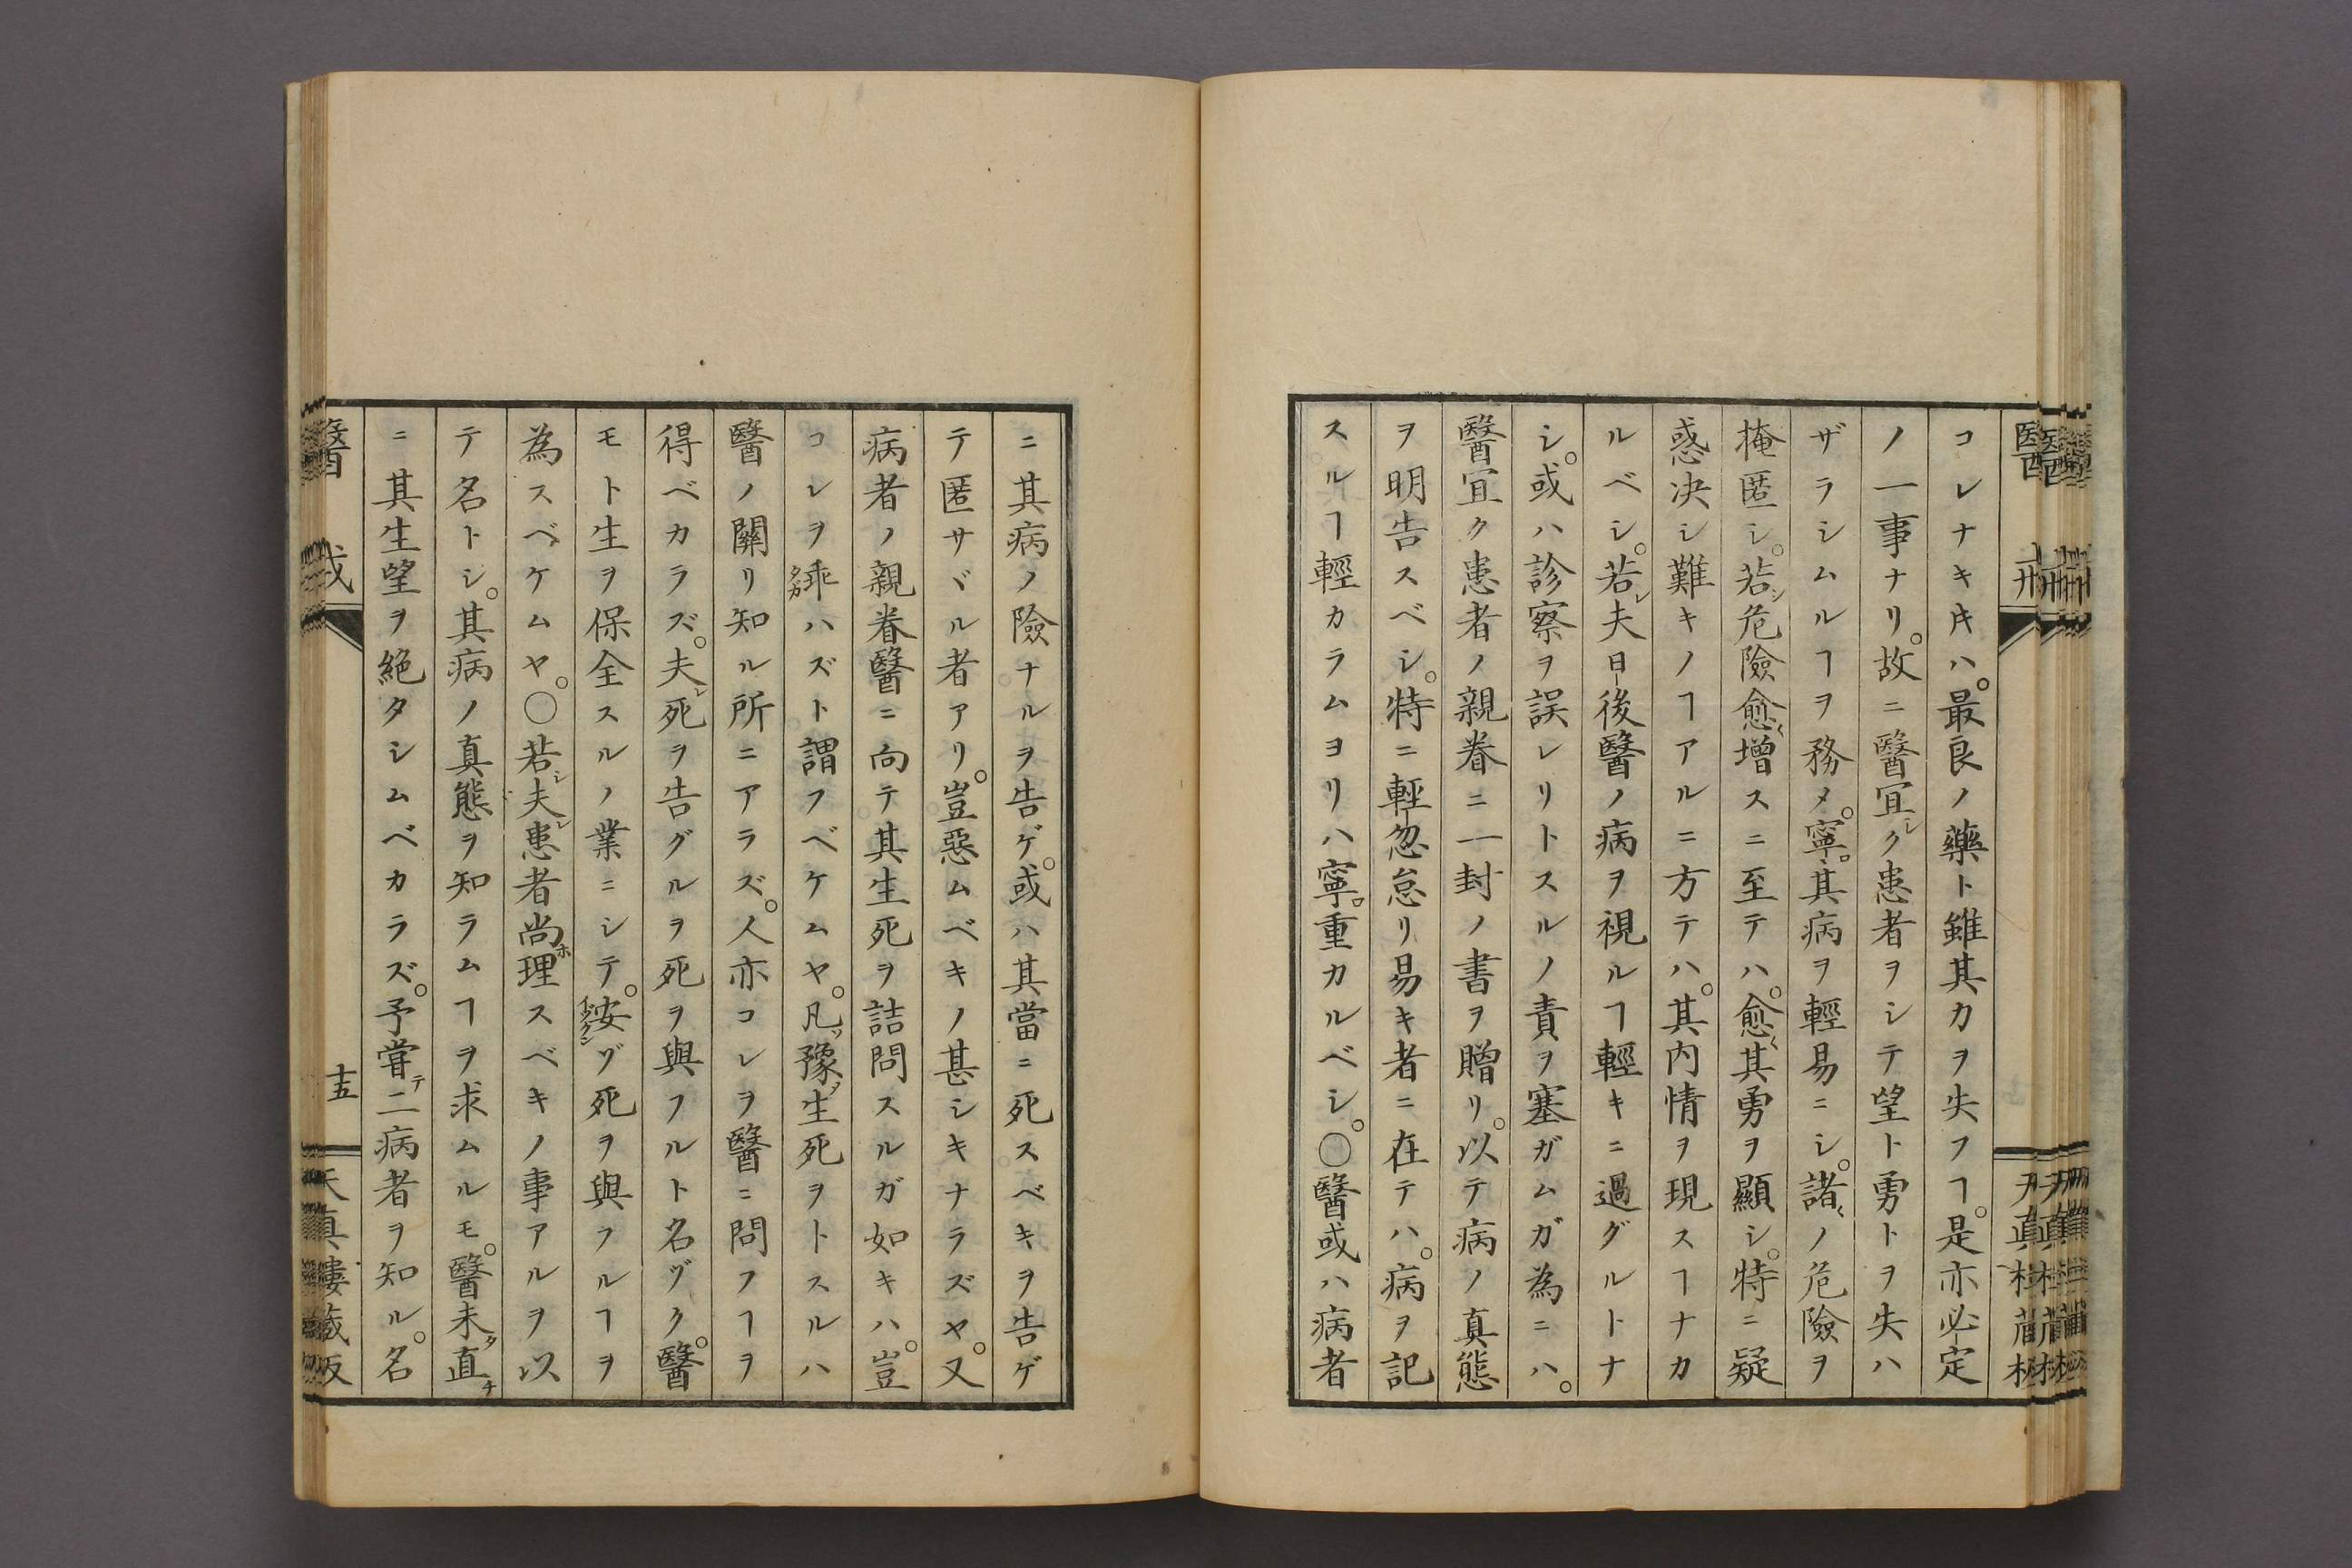 コレナキ𪜈ハ。最良ノ藥ト雖其力ヲ失フヿ。是亦必定
ノ一事ナリ。故ニ醫宜シク患者ヲシテ望ト勇トヲ失ハ
ザラシムルヿヲ務メ。寧ロ其病ヲ輕易ニシ。諸〻ノ危險ヲ
掩匿シ。若シ危險愈〻增スニ至テハ。愈〻其勇ヲ顯シ。特ニ疑
惑決シ難キノヿアルニ方テハ。其内情ヲ現スヿナカ
ルベシ。若レ夫日後醫ノ病ヲ視ルヿ輕キニ過グルトナ
シ。或ハ診察ヲ誤レリトスルノ責ヲ塞ガムガ為ニハ。
醫宜ク患者ノ親眷ニ一封ノ書ヲ贈リ。以テ病ノ真態
ヲ明告スベシ。特ニ輕忽怠リ易キ者ニ在テハ。病ヲ記
スルヿ輕カラムヨリハ寧ロ重カルベシ。〇醫或ハ病者
ニ其病ノ險ナルヲ告ゲ。或ハ其當ニ死スベキヲ告ゲ
テ匿サヾル者アリ。豈惡ムベキノ甚シキナラズヤ。又
病者ノ親眷醫ニ向テ其生死ヲ詰問スルガ如キハ。豈
コレヲ乖タガハズト謂フベケムヤ。凡ソ豫メ生死ヲトスルハ
醫ノ關リ知ル所ニアラズ。人亦コレヲ醫ニ問フヿヲ
得ベカラズ。夫レ死ヲ告グルヲ死ヲ與フルト名ヅク。醫
モト生ヲ保全スルノ業ニシテ。安イヅクンゾ死ヲ與フルヿヲ
為スベケムヤ。〇若シ夫レ患者尚ホ理スベキノ事アルヲ以
テ名トシ。其病ノ真態ヲ知ラムヿヲ求ムルモ。醫未タ直チ
ニ其生望ヲ絶タシムベカラズ。予嘗テ二病者ヲ知ル。名
醫 戒
十五
天真樓藏版